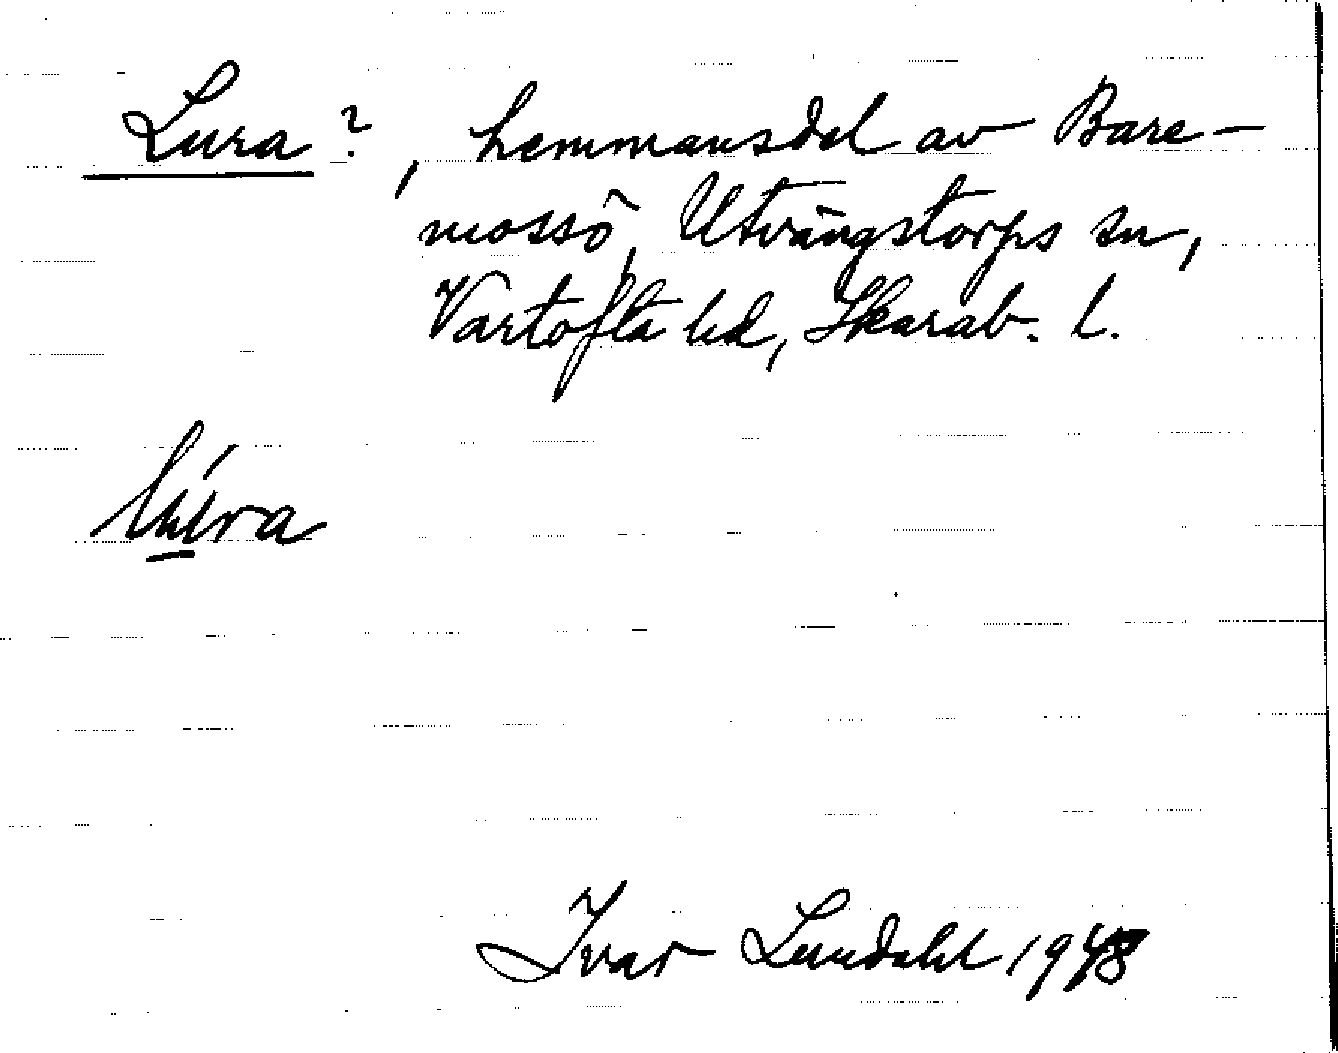 Lura?, hemmansdel av Bare-
mossö, Utvängstorps sn,
Vartofta hd, Skarab. l.
Ivar Lundahl 1948